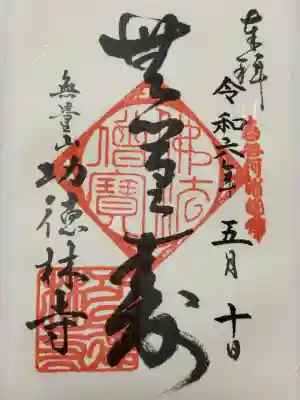 奉拝
令和六年 五月 十日
無量寿
佛法僧寳
無量山 功徳林寺